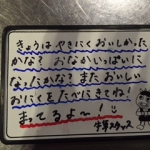 きょうは やきにく おいしかった
かな？ おなかがいっぱいに
なったかな？ また おいしい
おにくを たべにきてね！
まってるよ〜！
牛若スタッフ